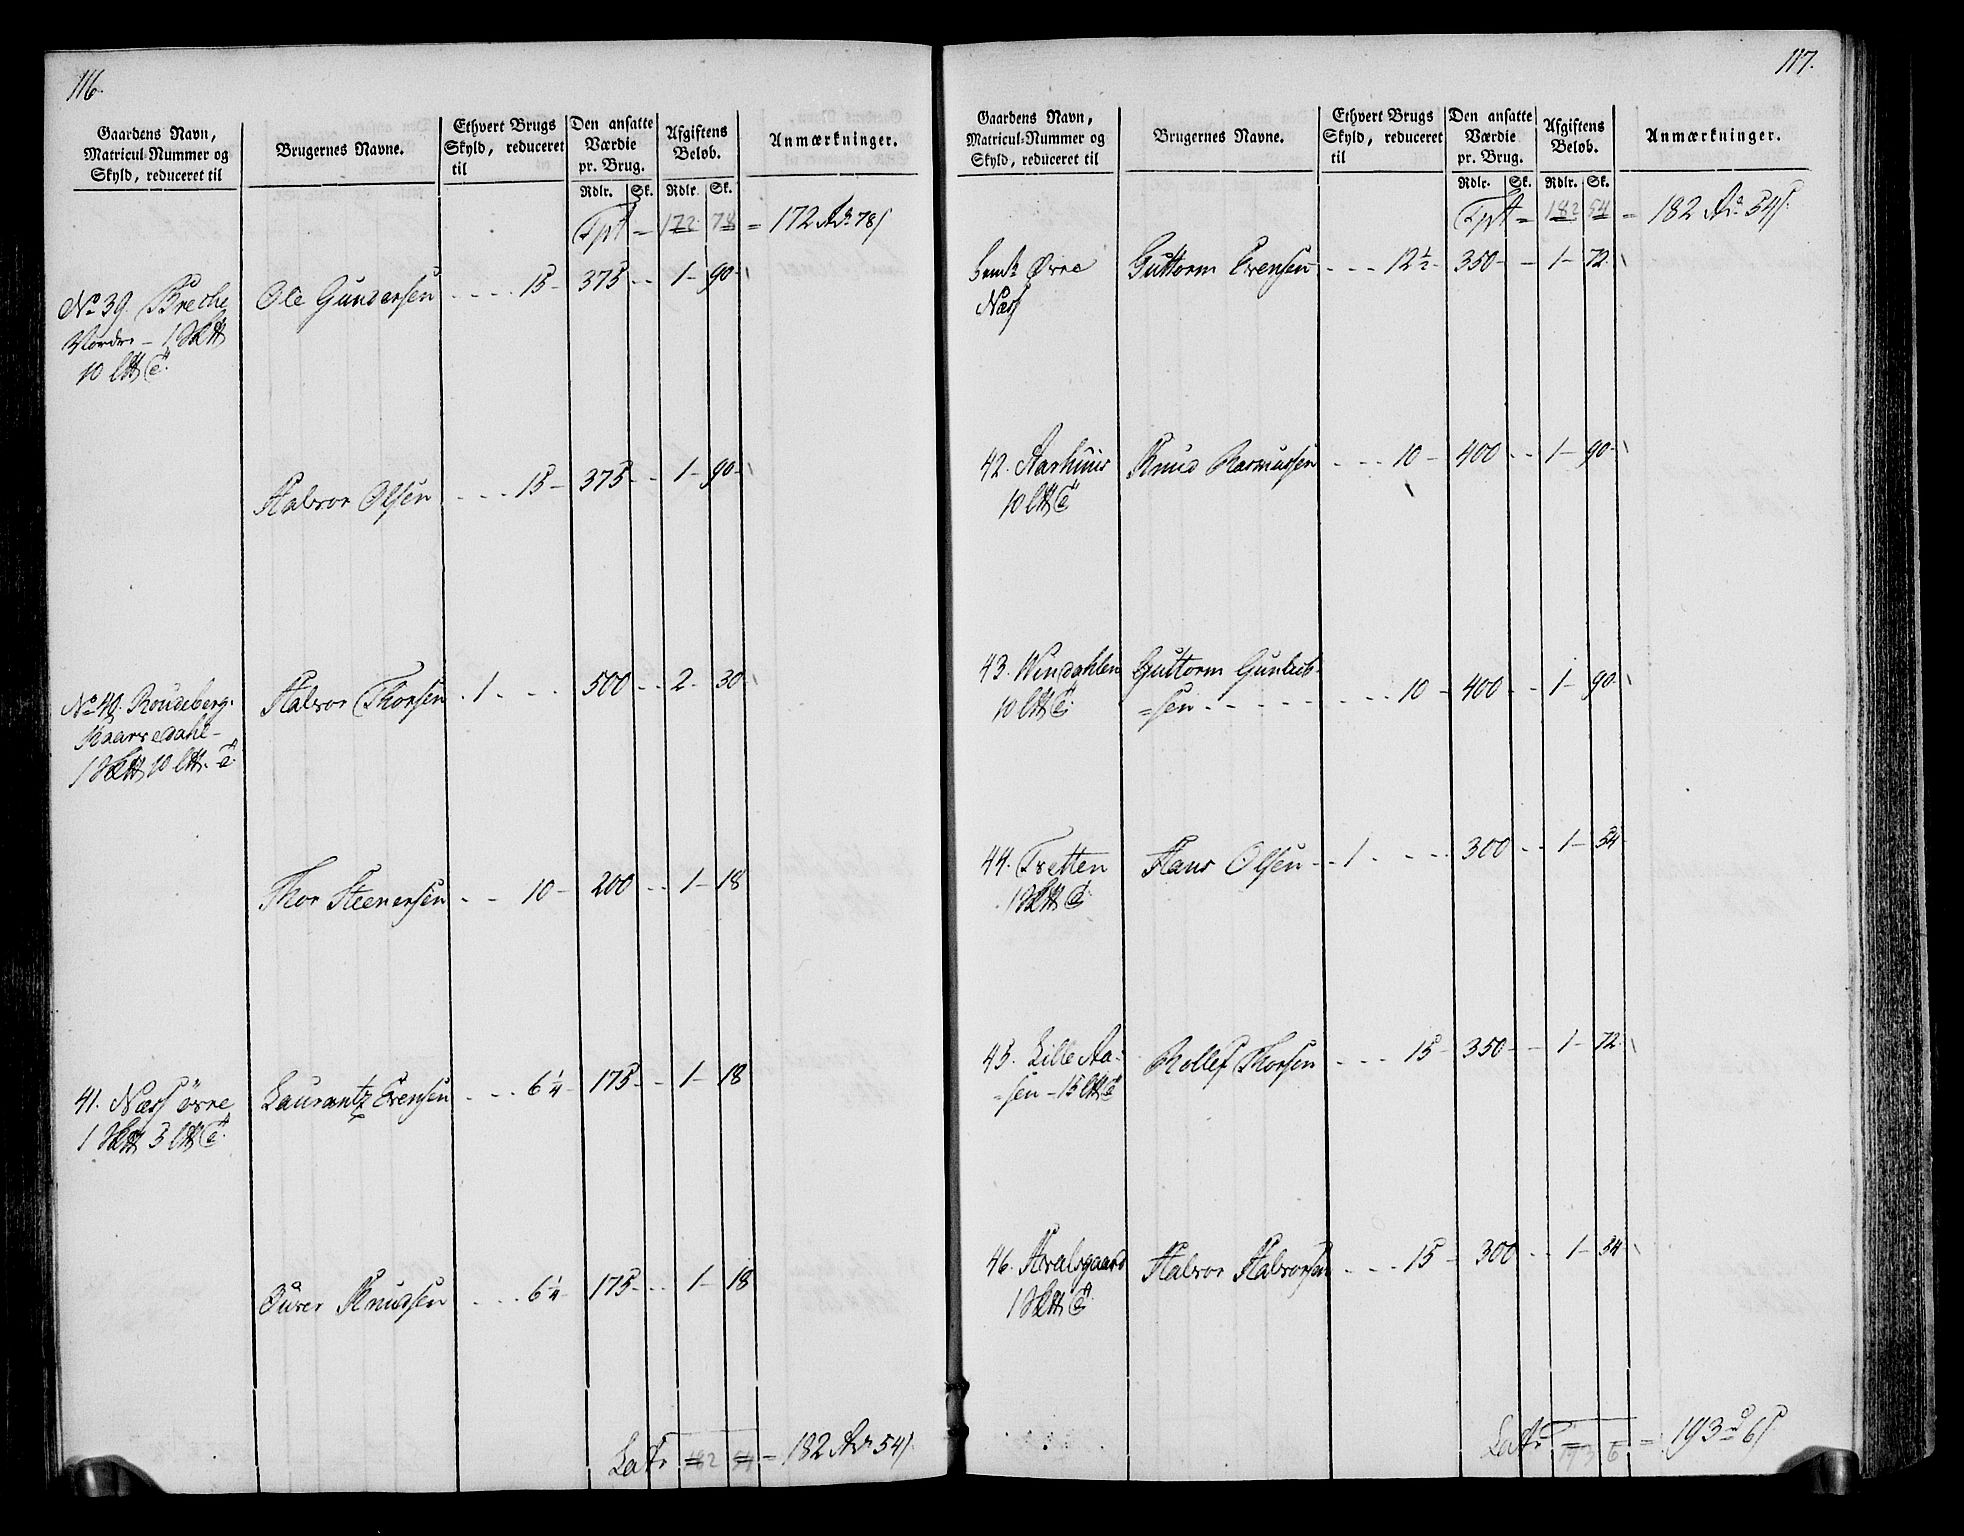 116.
Gaardens Navn, Matricul-Nummer og Skyld, reduceret til | Brugernes Navne. | Ethvert Brugs Skyld, reduceret til | Den ansatte Værdie pr. Brug. | Afgiftens Beløb. | Anmærkninger.
Rdlr. Sk. Rdlr. Sk.
Tpt = 172 78 = 172 Rd 78 s
No 39. Breche Ole Gundersen - - - - 15 - 375 - - 1 - 90 -
Nordre - 1
10
Halvor Olsen - - - - 15 - 375 - - 1 - 90 -
No 40. Roudeberg. Halvor Thorsen . 1 - - - 500 - - 2 - 30
Skaarredahl -
1 10
Thor Steenersen - - 10 - 200 - - 1 - 18
41. Næss øvre Laurantz Evensen - - - 6¼ - 175 - - 1 - 18
1 3
Turer Knudsen - - - 6¼ - 175 - - 1 - 18
Latr 182 54 = 182 Rd 54 s
117.
Gaardens Navn, Matricul-Nummer og Skyld, reduceret til | Brugernes Navne. | Ethvert Brugs Skyld, reduceret til | Den ansatte Værdie pr. Brug. | Afgiftens Beløb. | Anmærkninger.
Rdlr. Sk. Rdlr. Sk.
Tpt = 182 54 = 182 Rd 54 s
Øvre Guttorm Evensen - - - 12½ - 350 - - 1 - 72
Næss
42. Aarhuus Knud Rasmussen - - - 10 - 400 - - 1 - 90 -
10
43. Wendahlen Guttorm Gunleck-
10 =sen - - - - - - 10 - 400 - - 1 - 90
44. Tretten Hans Olsen - - 1 - - - - 300 - - 1 - 54
1
45. Lille Aa- Rollef Thorsen - - - 15 - 350 - - 1 - 72
=sen - 15
46. Halvor Halvorsen - - - 15 - 300 - - 1 - 54
1
Latr 193 6 = 193 d 6 s